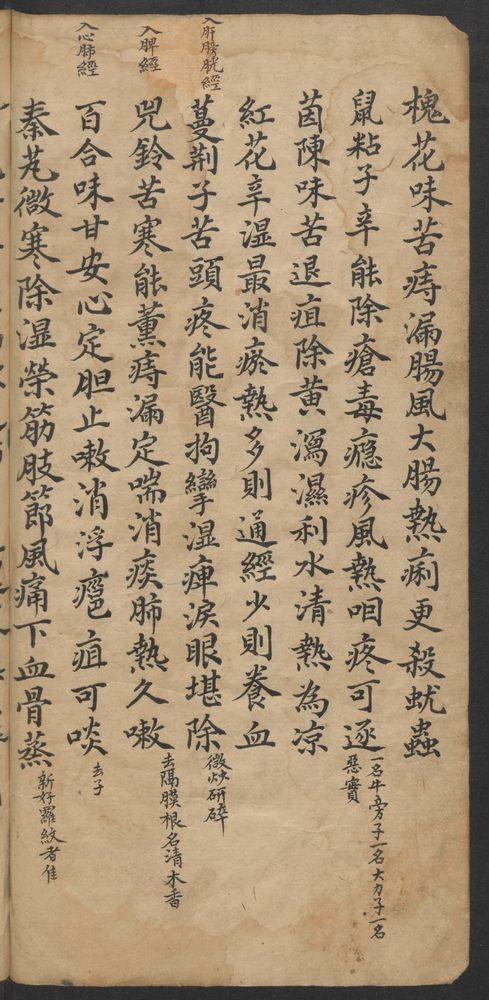 槐花味苦痔漏腸風大腸熱痢更殺蚘蟲
鼠粘子辛能除瘡毒癮疹風熱咽疼可逐
一名牛旁子一名大力子一名
惡實
茵陳味苦退疸除黃瀉濕利水清熱為凉
紅花辛湿最消瘀熱多則通經少則養血
入肝膀胱經
蔓荆子苦頭疼能醫拘攣湿痺淚眼堪除
微炒研碎
入脾經
兜鈴苦寒能薰痔漏定喘消痰肺熱久嗽
去隔膜根名清木香
入心肺經
百合味甘安心定胆止嗽消浮癰疽可啖
去子
秦艽微寒除湿荣筋肢節風痛下血骨蒸
新好羅紋者佳